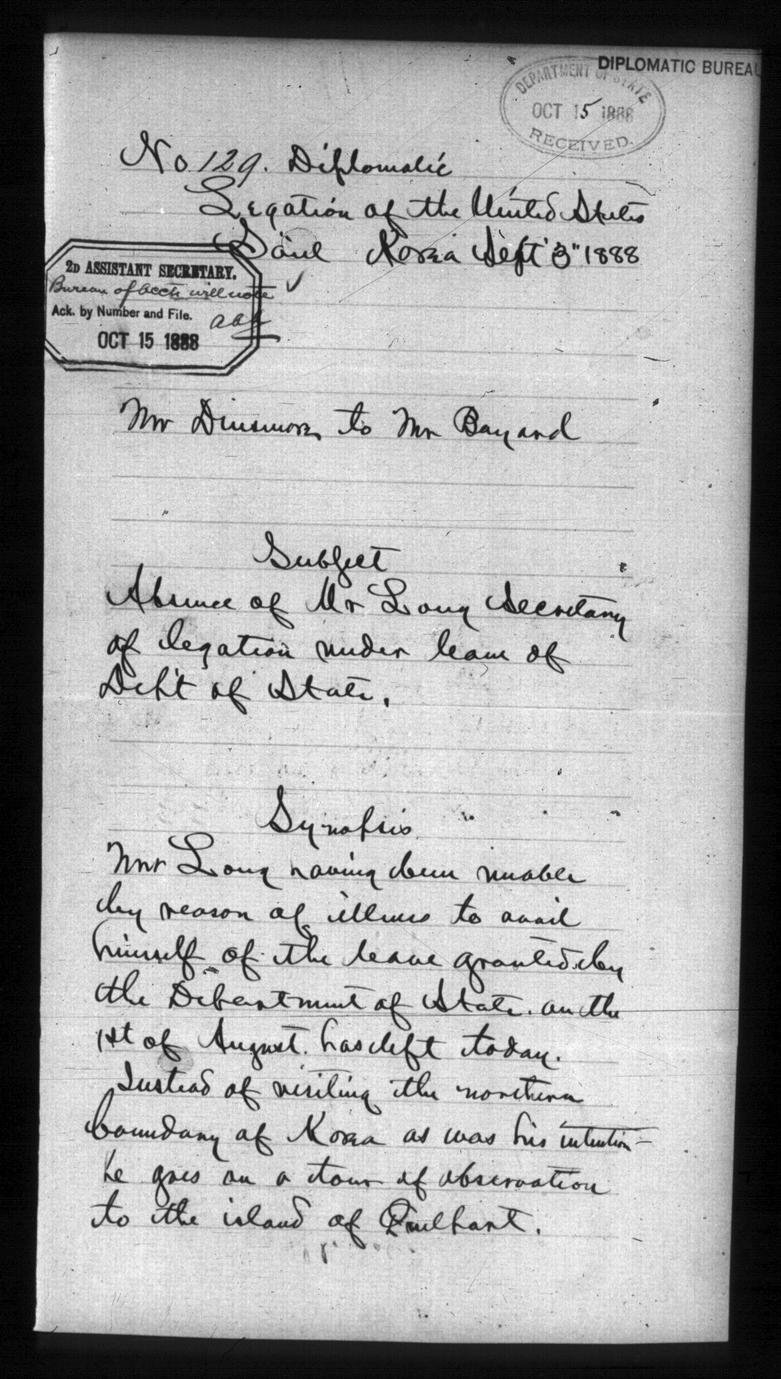 DIPLOMATIC BUREAU
DEPARTMENT OF STATE
OCT 15 1888
RECEIVED.
No 129. Diplomatic
Legation of the United States
Söul Korea Sept 3" 1888
2D ASSISTANT SECRETARY.
Bureau of accts will note
Ack. by Number and File.
OCT 15 1888
Mr Dinsmore to Mr Bayard
Subject
Absence of Mr Long Secretary
of legation under leave of
Dep't of State.
Synopsis
Mr Long having been unable
by reason of illness to avail
himself of the leave granted by
the Department of State. on the
1st of August. has left today.
Instead of visiting the northern
boundary of Korea as was his intention
he goes on a tour of observation
to the island of Quelpart.